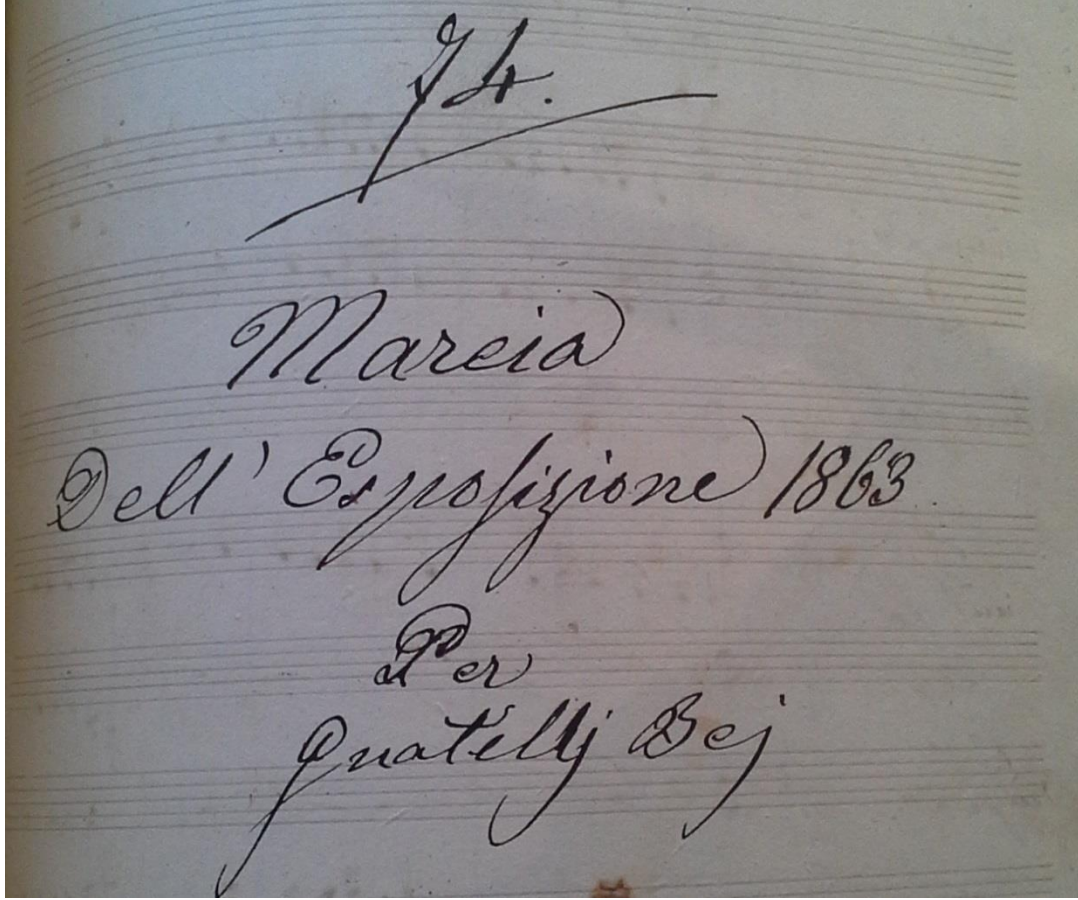 74.
Marcia
Dell' Esposizione 1863
Per
Guatellj Bej